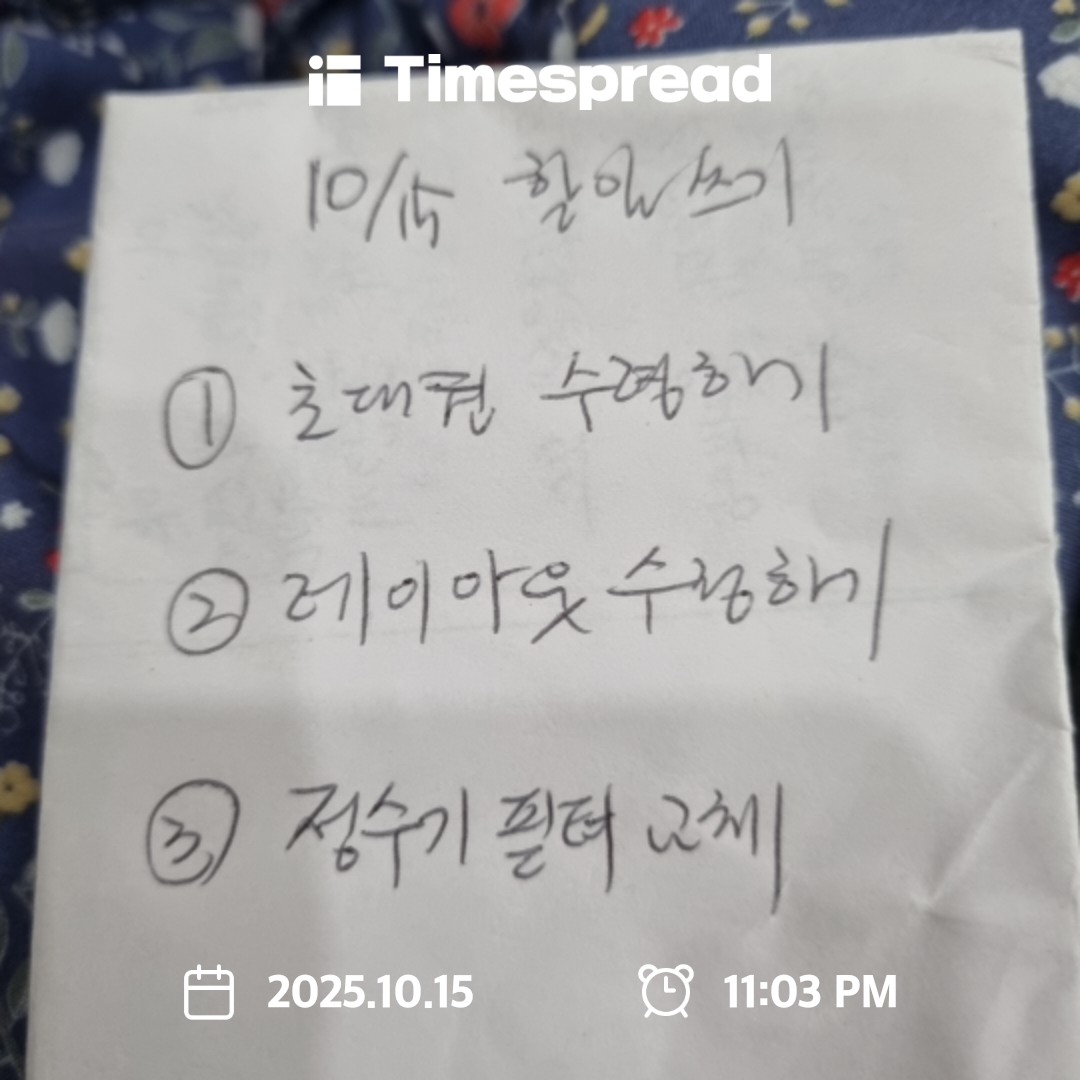 Timespread
10/15 할일쓰기
① 초대권 수령하기
② 레이아웃 수정하기
③ 정수기 필터 교체
2025.10.15 11:03 PM